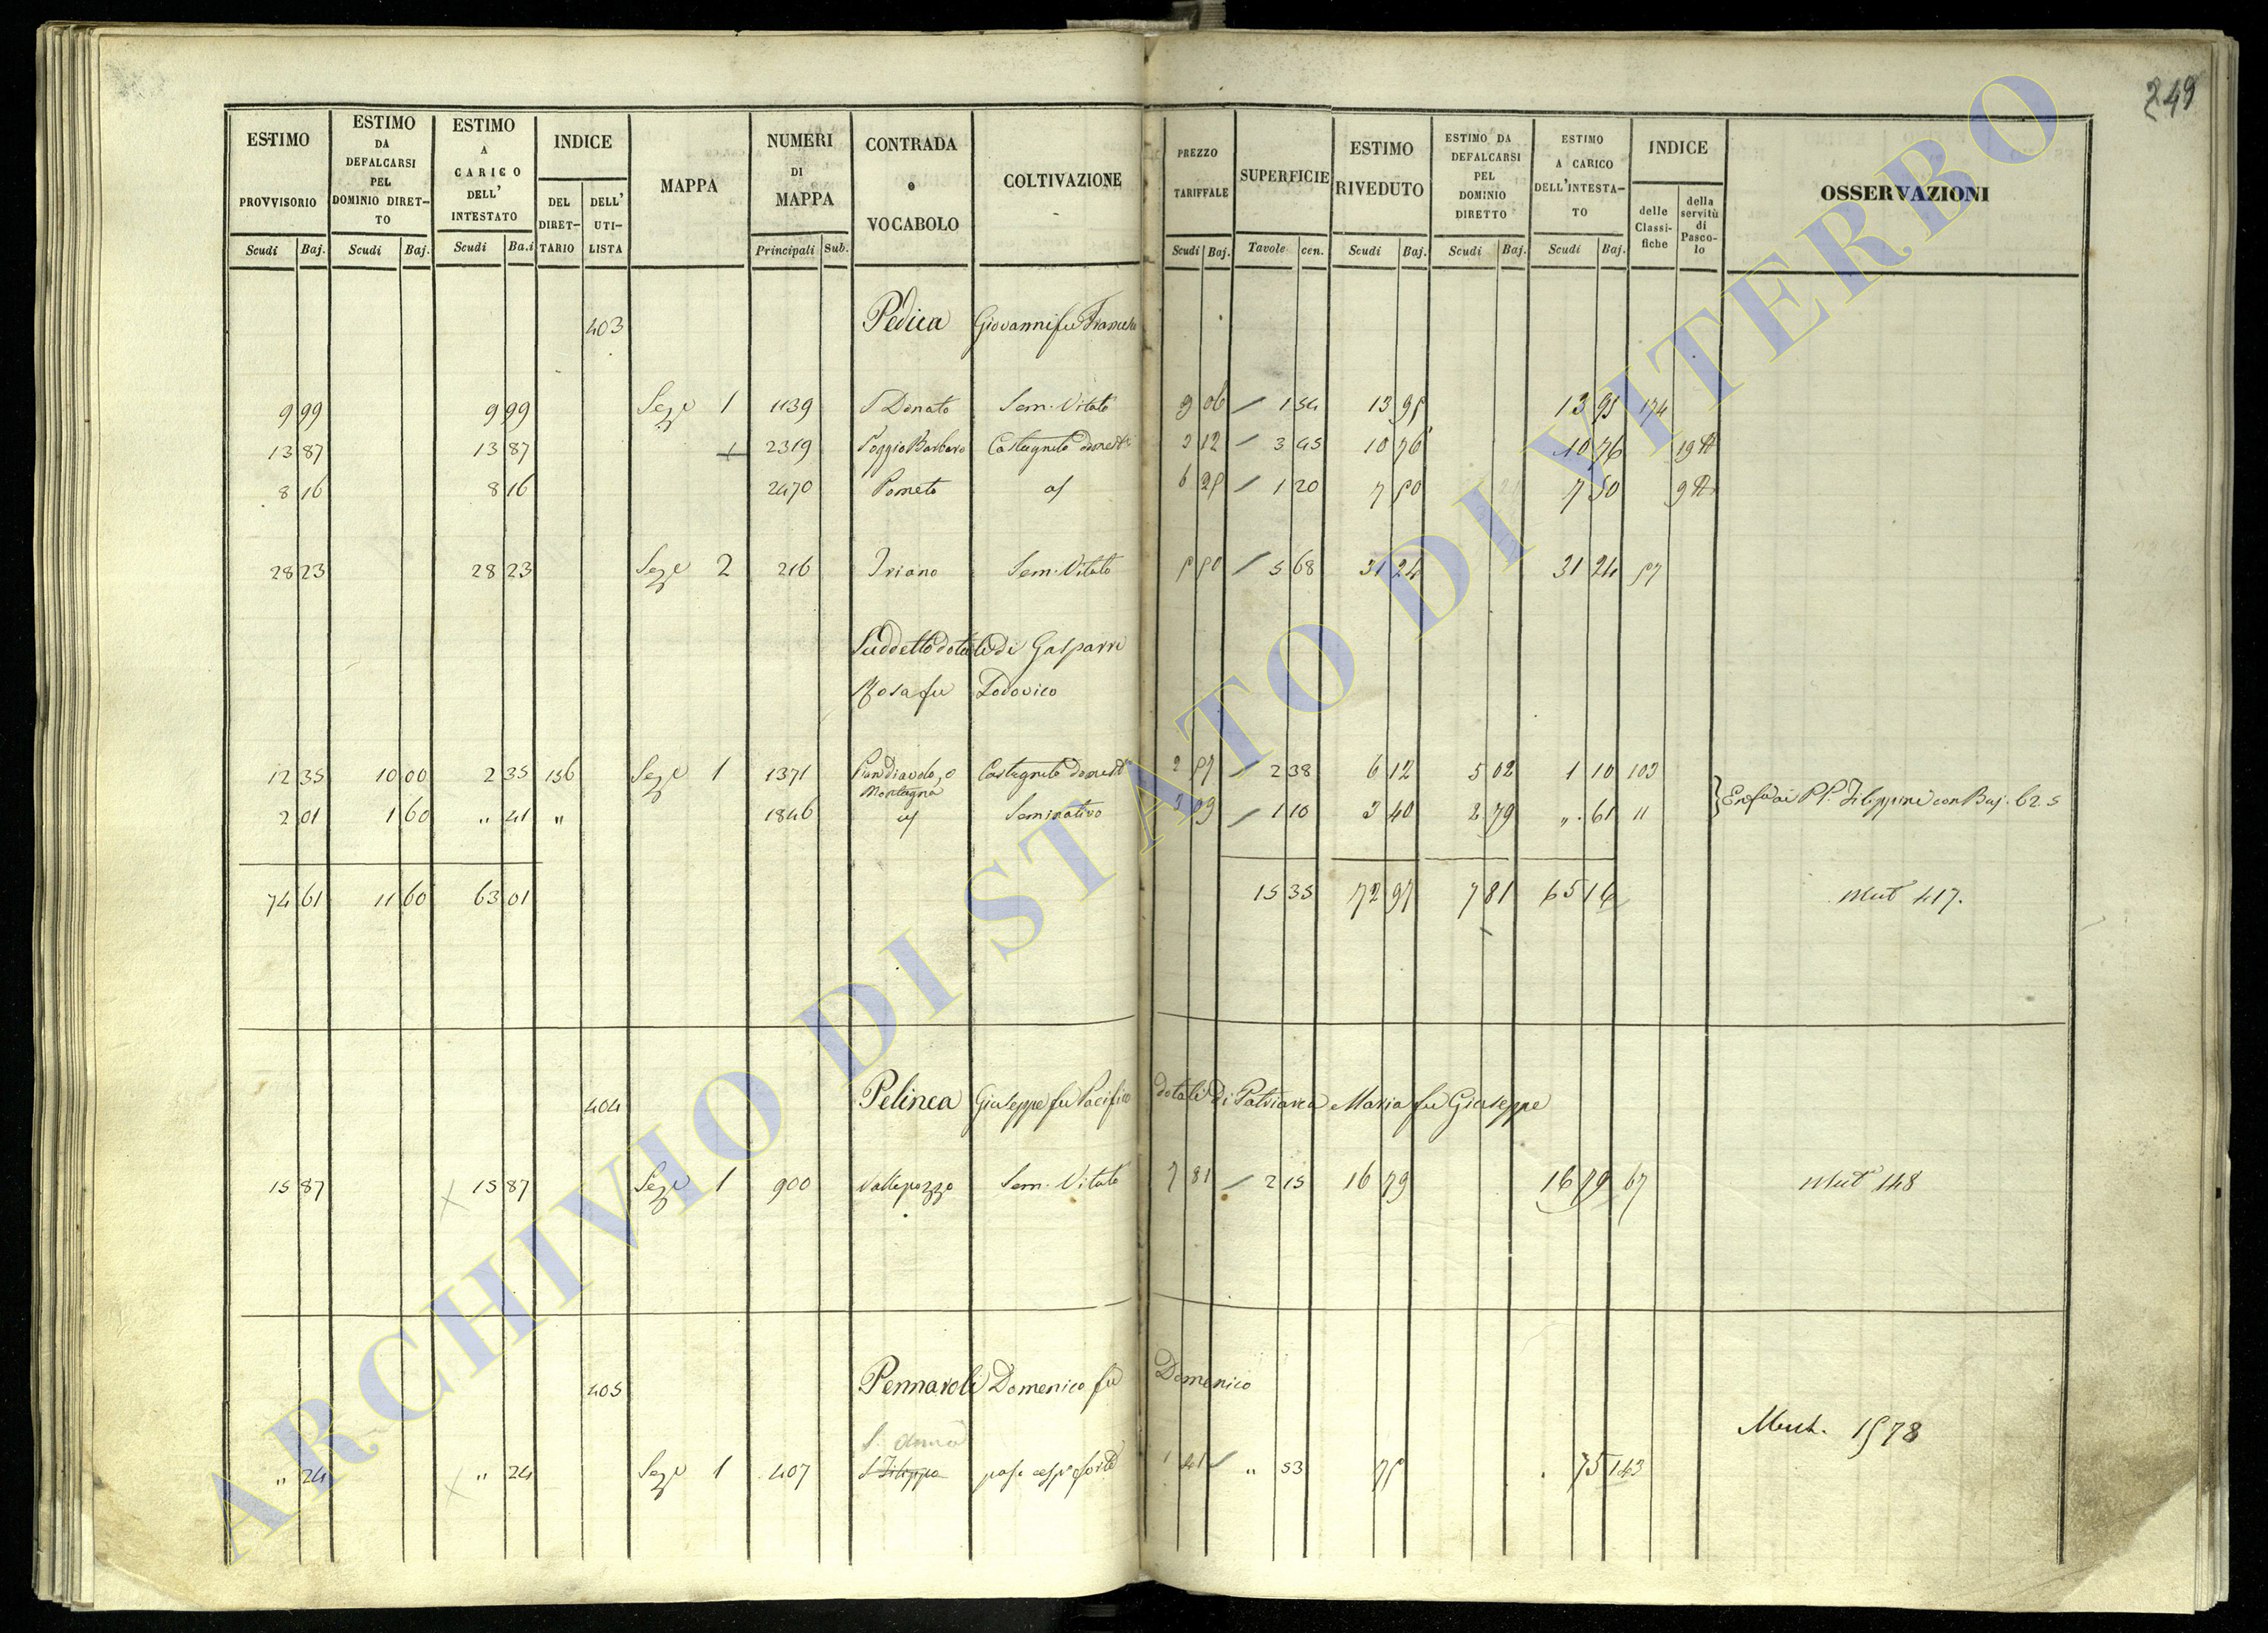 249
ESTIMO PROVVISORIO Scudi Baj. ESTIMO DA DEFALCARSI PEL DOMINIO DIRETTO Scudi Baj. ESTIMO A CARICO DELL' INTESTATO Scudi Ba.i INDICE DEL DIRETTARIO DELL' UTILISTA MAPPA NUMERI DI MAPPA Principali Sub. CONTRADA o VOCABOLO COLTIVAZIONE PREZZO TARIFFALE Scudi Baj. SUPERFICIE Tavole cen. ESTIMO RIVEDUTO Scudi Baj. ESTIMO DA DEFALCARSI PEL DOMINIO DIRETTO Scudi Baj. ESTIMO A CARICO DELL'INTESTATO Scudi Baj. INDICE delle Classifiche della servitù di Pascolo OSSERVAZIONI
403 Pedica Giovanni fu Francesco
9 99 9 99 Seze 1 1139 S Donato Sem. Vitato 9 06 1 54 13 95 13 95 174
13 87 13 87 + 2319 Poggio Barbaro Castagneto domest 3 12 3 45 10 76 10 76 19
8 16 8 16 2470 Pometo 6 25 1 20 7 50 7 50 9
28 23 28 23 Seze 2 216 Iriano Sem. Vitato 5 50 5 68 31 24 31 24 57
Suddetto dotale di Gasparri
Rosa fu Lodovico
12 35 10 00 2 35 136 Seze 1 1371 Piandiavolo, o Montagna Castagneto domest 2 57 2 38 6 12 5 02 1 10 103
2 01 1 60 " 41 " 1846 Seminativo 3 09 1 10 3 40 2 79 " 61 " Enf. ai PP. Filippini con Baj. 62 5
74 61 11 60 63 01 15 35 72 97 7 81 65 16 Mut 417.
404 Pelinca Giuseppe fu Pacifico dotale di Patriarca Maria fu Giuseppe
15 87 15 87 Seze 1 900 Vallepozzo Sem. Vitato 7 81 2 15 16 79 16 79 67 Mut 148
405 Pennaroli Domenico fu Domenico
Mut. 1578
" 24 " 24 Seze 1 407 S Filippo 1 41 " 53 75 75 143
ARCHIVIO DI STATO DI VITERBO